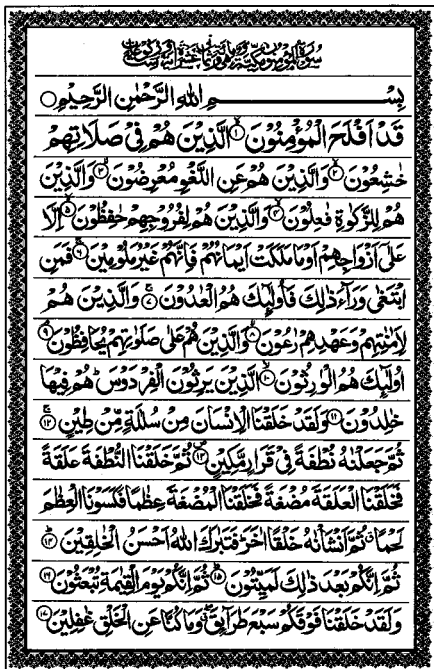 سورة المؤمنون مكية وهى
بِسْمِ اللهِ الرَّحْمٰنِ الرَّحِيْمِ
قَدْ اَفْلَحَ الْمُؤْمِنُوْنَ ۱ الَّذِيْنَ هُمْ فِيْ صَلَاتِهِمْ
خٰشِعُوْنَ ۲ وَالَّذِيْنَ هُمْ عَنِ اللَّغْوِ مُعْرِضُوْنَ ۳ وَالَّذِيْنَ
هُمْ لِلزَّكٰوةِ فٰعِلُوْنَ ۴ وَالَّذِيْنَ هُمْ لِفُرُوْجِهِمْ حٰفِظُوْنَ ۵ اِلَّا
عَلٰۤى اَزْوَاجِهِمْ اَوْ مَا مَلَكَتْ اَيْمَانُهُمْ فَاِنَّهُمْ غَيْرُ مَلُوْمِيْنَ ۶ فَمَنِ
ابْتَغٰى وَرَآءَ ذٰلِكَ فَاُولٰٓئِكَ هُمُ الْعٰدُوْنَ ۷ وَالَّذِيْنَ هُمْ
لِاَمٰنٰتِهِمْ وَعَهْدِهِمْ رٰعُوْنَ ۸ وَالَّذِيْنَ هُمْ عَلٰى صَلَوٰتِهِمْ يُحَافِظُوْنَ ۹
اُولٰٓئِكَ هُمُ الْوٰرِثُوْنَ ۱۰ الَّذِيْنَ يَرِثُوْنَ الْفِرْدَوْسَ ؕ هُمْ فِيْهَا
خٰلِدُوْنَ ۱۱ وَلَقَدْ خَلَقْنَا الْاِنْسَانَ مِنْ سُلٰلَةٍ مِّنْ طِيْنٍ ۱۲
ثُمَّ جَعَلْنٰهُ نُطْفَةً فِيْ قَرَارٍ مَّكِيْنٍ ۱۳ ثُمَّ خَلَقْنَا النُّطْفَةَ عَلَقَةً
فَخَلَقْنَا الْعَلَقَةَ مُضْغَةً فَخَلَقْنَا الْمُضْغَةَ عِظٰمًا فَكَسَوْنَا الْعِظٰمَ
لَحْمًا ۗ ثُمَّ اَنْشَاْنٰهُ خَلْقًا اٰخَرَ ؕ فَتَبٰرَكَ اللهُ اَحْسَنُ الْخٰلِقِيْنَ ۱۴
ثُمَّ اِنَّكُمْ بَعْدَ ذٰلِكَ لَمَيِّتُوْنَ ۱۵ ثُمَّ اِنَّكُمْ يَوْمَ الْقِيٰمَةِ تُبْعَثُوْنَ ۱۶
وَلَقَدْ خَلَقْنَا فَوْقَكُمْ سَبْعَ طَرَآئِقَ ۖ وَمَا كُنَّا عَنِ الْخَلْقِ غٰفِلِيْنَ ۱۷